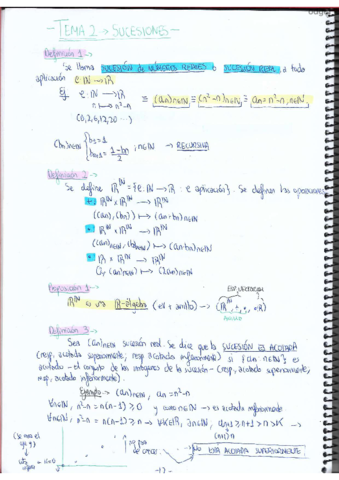 - TEMA 2 → SUCESIONES -
Definición 1 →
Se llama SUCESIÓN de NÚMEROS REALES o SUCESIÓN REAL a toda
aplicación φ: ℕ → ℝ
Ej φ: ℕ → ℝ
n ↦ n²-n ≡ (an)n∈ℕ ≡ (n²-n)n∈ℕ ≡ an = n²-n, n∈ℕ
(0,2,6,12,20 ...)
(bn)n∈ℕ { b1 = 1
bn+1 = 1-bn/2 ; n∈ℕ → RECURSIVA
Definición 2 →
Se define ℝ^ℕ = {φ: ℕ → ℝ : φ aplicación}. Se definen las operaciones
+: ℝ^ℕ × ℝ^ℕ → ℝ^ℕ
((an), (bn)) ↦ (an+bn)n∈ℕ
•: ℝ^ℕ × ℝ^ℕ → ℝ^ℕ
((an)n∈ℕ, (bn)n∈ℕ) ↦ (an·bn)n∈ℕ
•: ℝ × ℝ^ℕ → ℝ^ℕ
(λ, (an)n∈ℕ) ↦ (λan)n∈ℕ
Proposición 1 →
ℝ^ℕ es una ℝ-álgebra (ev + anillo) → (ℝ^ℕ, +, •, •ℝ)
Definición 3 →
Sea (an)n∈ℕ sucesión real. Se dice que la SUCESIÓN ES ACOTADA
(resp. acotada superiormente, resp acotada inferiormente) si {an n∈ℕ} es
acotado - el conjunto de las imágenes de la sucesión - (resp. acotado superiormente,
resp. acotado inferiormente).
Ejemplo → (an)n∈ℕ, an = n²-n
∀n∈ℕ, n²-n = n(n-1) ≥ 0 y como n∈ℕ → es acotada inferiormente
∀n∈ℕ, n²-n = n(n-1) ≥ n → ∀K∈ℝ, ∃n∈ℕ, an ≥ n+1 > n > K →
(n+1)n
No está ACOTADA SUPERIORMENTE.